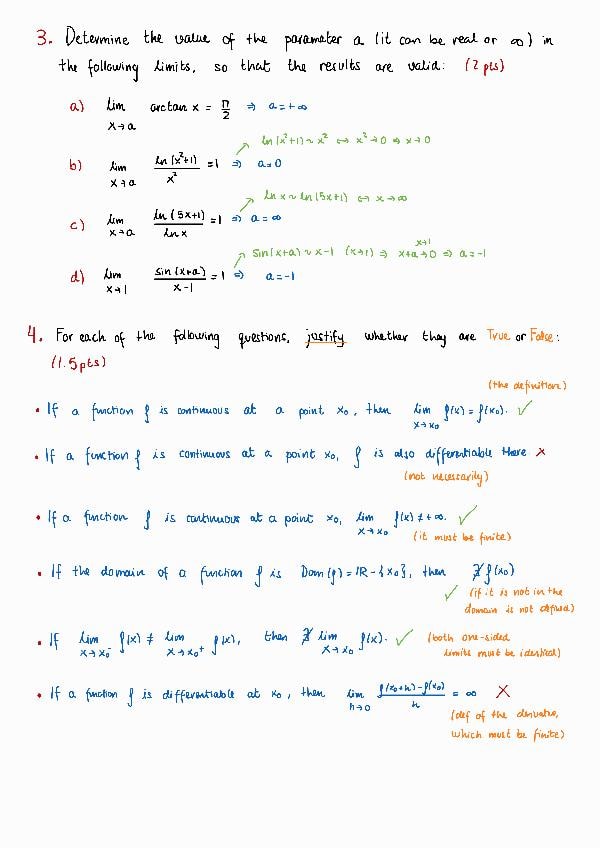 3. Determine the value of the parameter a (it can be real or ∞) in
the following limits, so that the results are valid: (2 pts)
a) lim x→a arctan x = π/2 ⇒ a=+∞
ln(x²+1) ~ x² ⇔ x²→0 ⇔ x→0
b) lim x→a ln(x²+1)/x² = 1 ⇒ a=0
ln x ~ ln(5x+1) ⇔ x→∞
c) lim x→a ln(5x+1)/ln x = 1 ⇒ a=∞
sin(x+a) ~ x-1 (x→1) ⇒ x+a →0 x→1 ⇒ a=-1
d) lim x→1 sin(x+a)/x-1 = 1 ⇒ a=-1
4. For each of the following questions, justify whether they are True or False:
(1.5pts)
(the definition)
• If a function f is continuous at a point x₀, then lim x→x₀ f(x) = f(x₀). ✓
• If a function f is continuous at a point x₀, f is also differentiable there ×
(not necessarily)
• If a function f is continuous at a point x₀, lim x→x₀ f(x) ≠ +∞. ✓
(it must be finite)
• If the domain of a function f is Dom(f) = ℝ-{x₀}, then ∄ f(x₀)
✓ (if it is not in the
domain is not defined)
• If lim x→x₀⁻ f(x) ≠ lim x→x₀⁺ f(x), then ∄ lim x→x₀ f(x). ✓ (both one-sided
limits must be identical)
• If a function f is differentiable at x₀, then lim h→0 f(x₀+h)-f(x₀)/h = ∞ ×
(def of the derivative,
which must be finite)